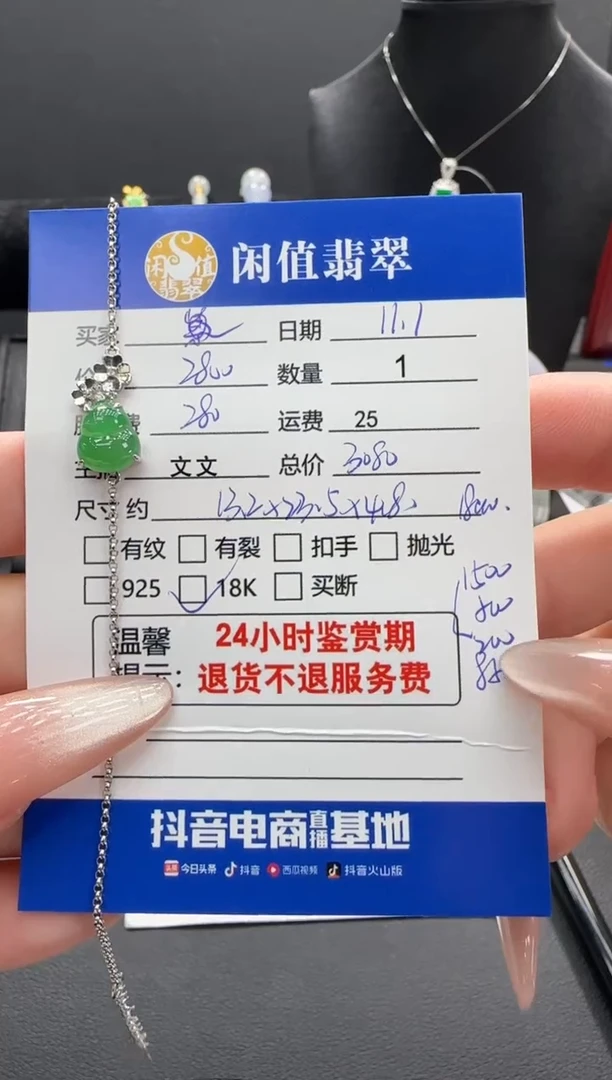 闲值翡翠
闲值翡翠
买家 日期 11.1
2800 数量 1
280 运费 25
文文 总价 3080
尺寸约 13.2×23.5×4.8
有纹 有裂 扣手 抛光
1500
925 18K 买断
温馨 24小时鉴赏期
提示：退货不退服务费
抖音电商直播基地
头条 今日头条 抖音 西瓜视频 抖音火山版